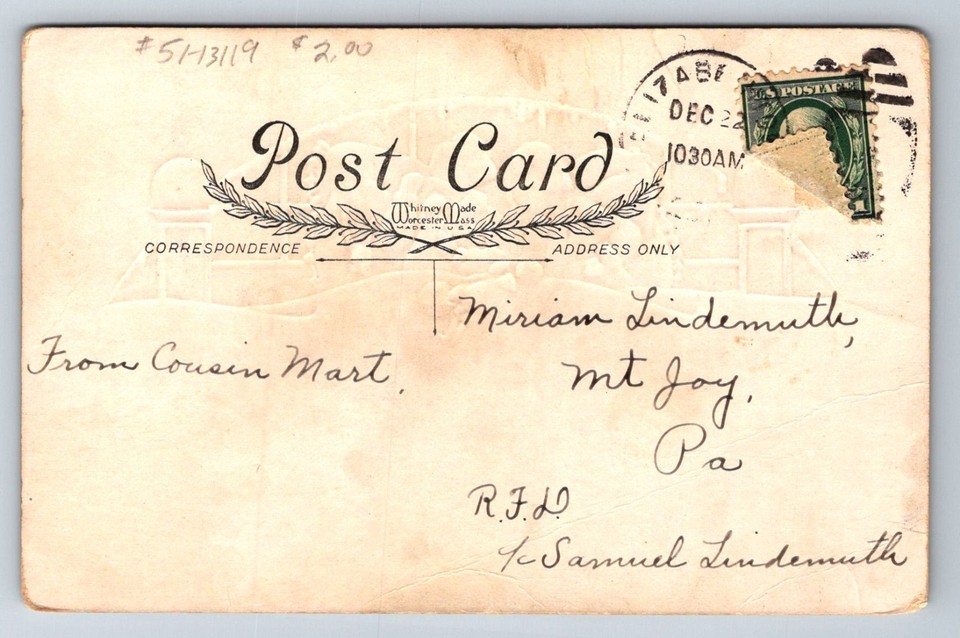 #51-13119 $2.00
DEC 22
1030AM
U.S. POSTAGE
1
Post Card
Whitney Made
Worcester Mass
MADE IN U.S.A.
CORRESPONDENCE
ADDRESS ONLY
Miriam Lindemuth,
Mt Joy,
Pa
R.F.D
From Cousin Mart.
℅ Samuel Lindemuth